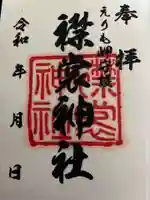 奉拝
えりも岬鎮座
襟裳神社
神社
令和 年 月 日